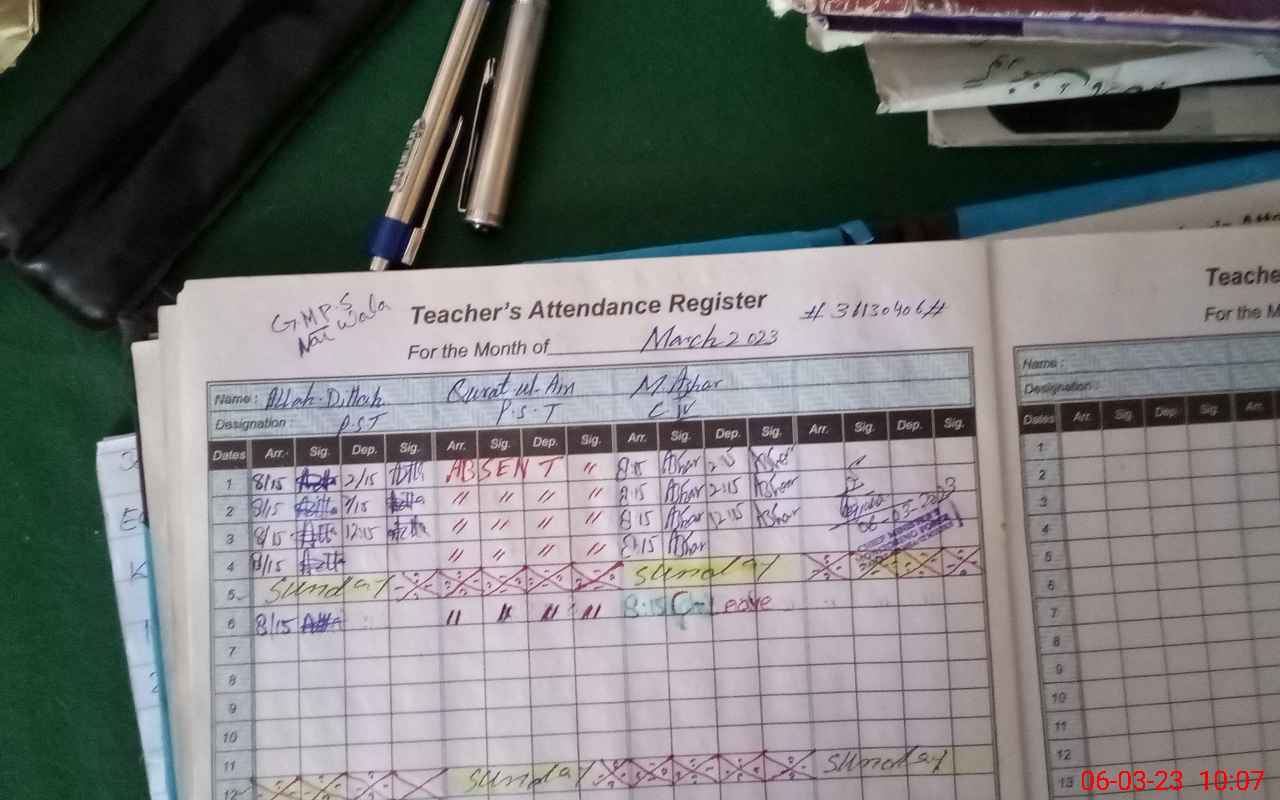 G.M.P.S
Nai Wala
Teacher's Attendance Register
# 31130406 #
For the Month of March 2023
Name : Allah Dittah Qurat-ul-Ain M. Azhar
Designation : P.S.T P.S.T C IV
Dates Arr. Sig. Dep. Sig. Arr. Sig. Dep. Sig. Arr. Sig. Dep. Sig. Arr. Sig. Dep. Sig.
1 8/15 2/15 ABSENT " 8:15 Azhar 2:15 Azhar
2 8/15 2/15 " " " " 8:15 Azhar 2:15 Azhar
3 8/15 12:15 " " " " 8:15 Azhar 12:15 Azhar
06-03-2023
4 8/15 " " " " 8:15 Azhar
5 Sunday Sunday
6 8/15 " " " " 8:15 C-Leave
7
8
9
10
11
12 Sunday Sunday
Teache
For the M
Name :
Designation :
Dates Arr. Sig. Dep. Sig. Arr.
1
2
3
4
5
6
7
8
9
10
11
12
13
06-03-23 10:07